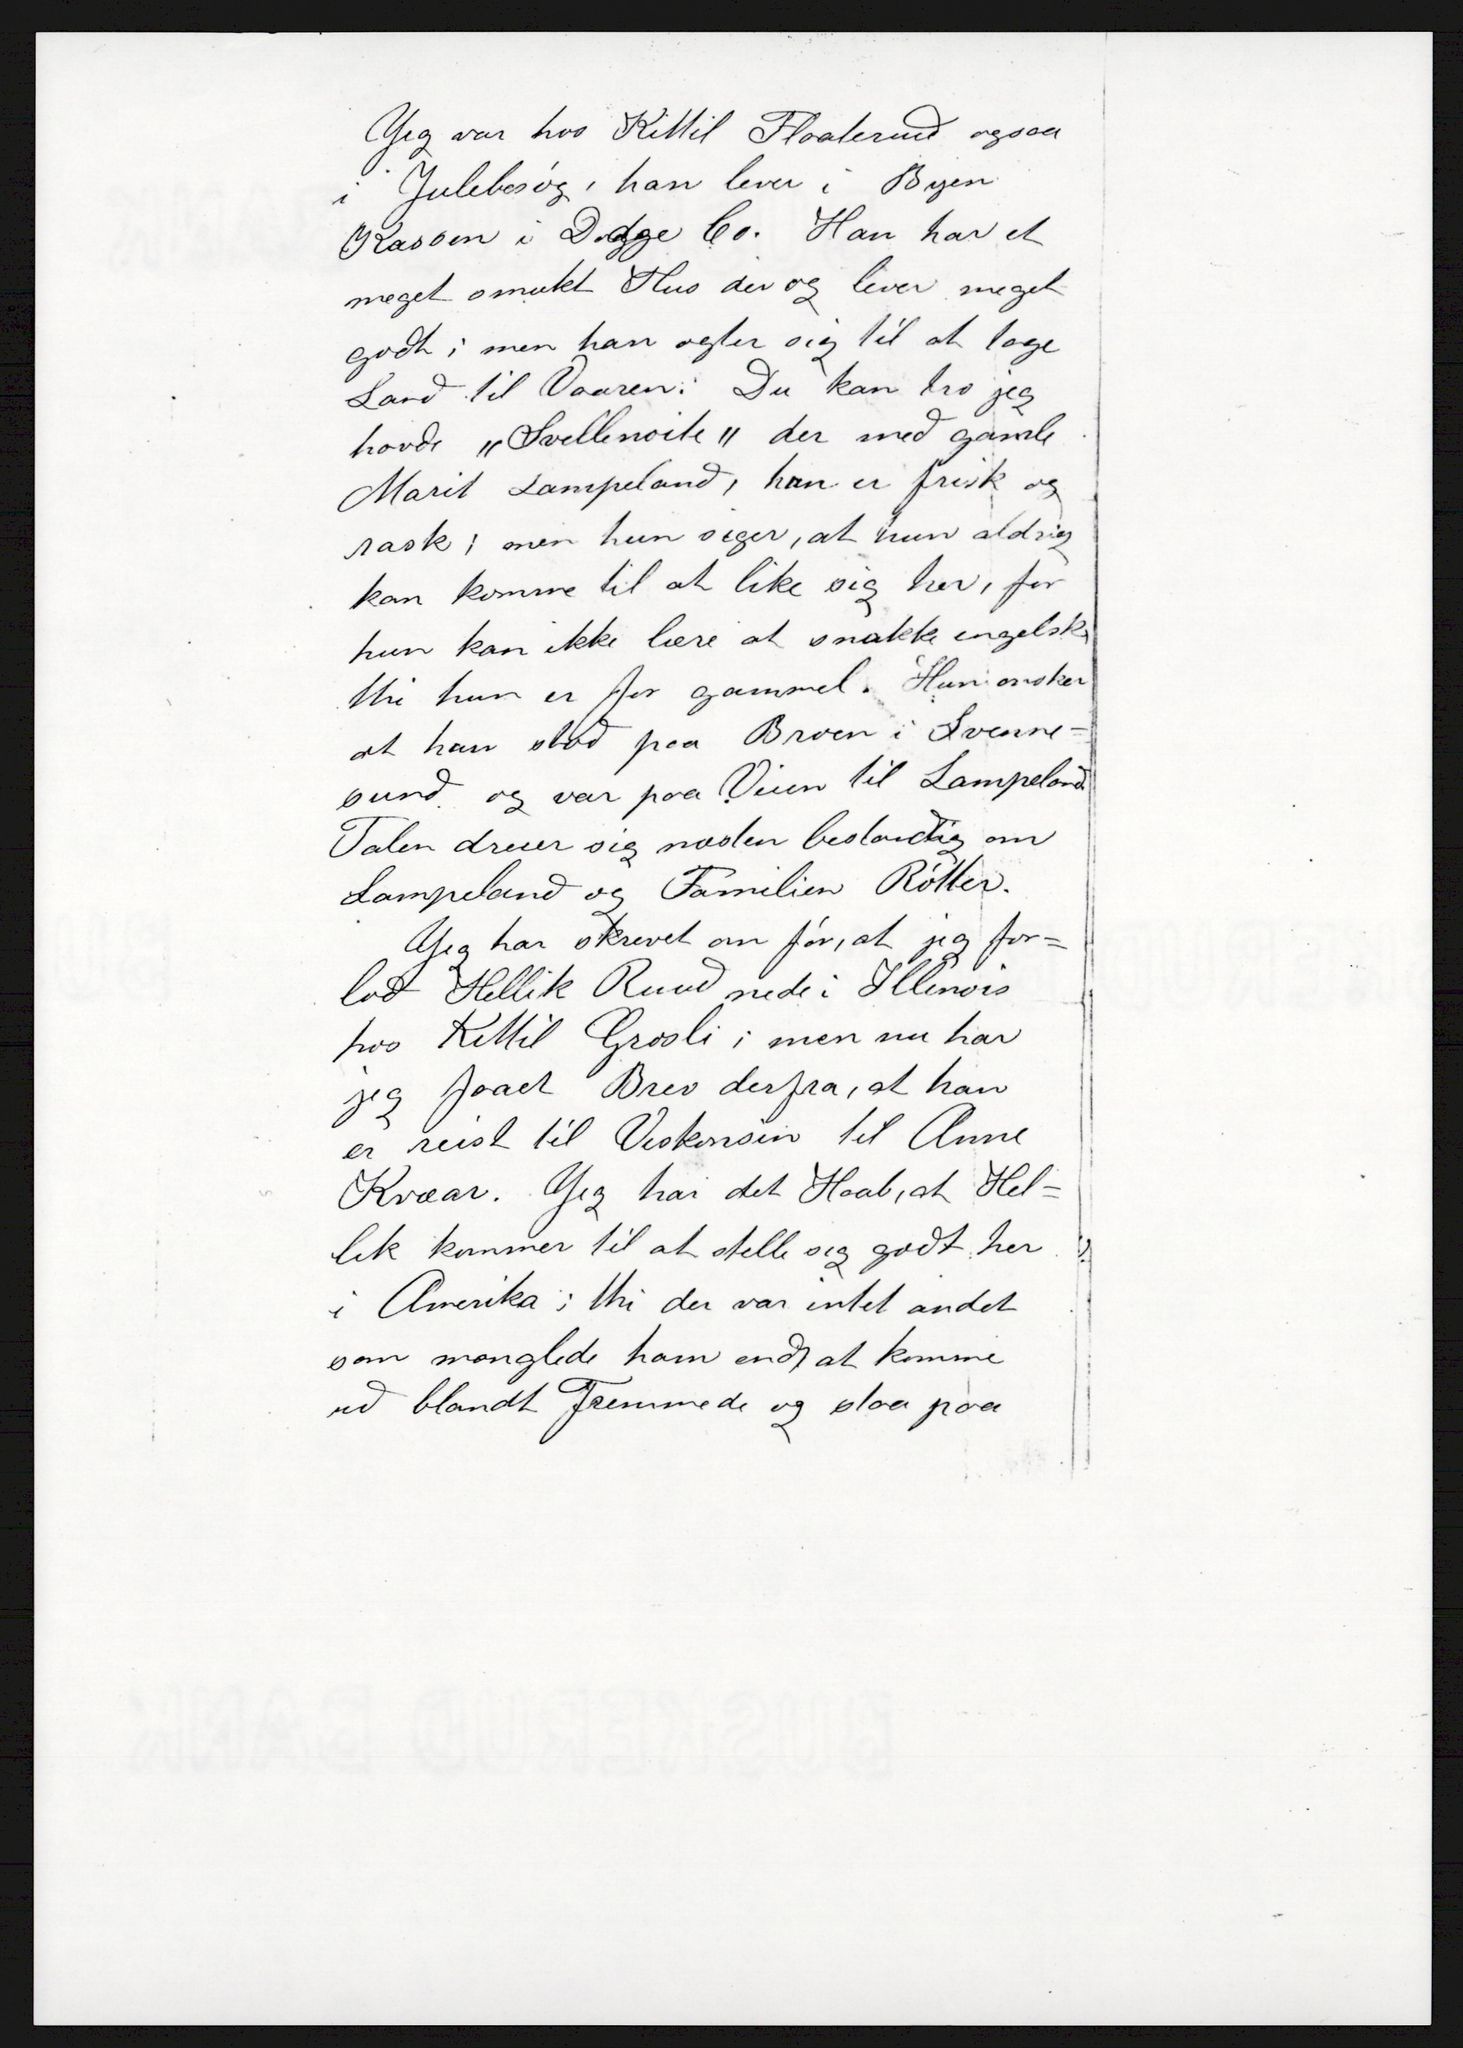 Jeg var hos Kittil Flaaterud ogsaa
i Julebesøg, han lever i Byen
Kasson i Dodge Co. Han har et
meget smukt Hus der og lever meget
godt; men han agter sig til at tage
Land til Vaaren. Du kan tro jeg
havde „Svellenoite" der med gamle
Marit Lampeland, hun er frisk og
rask; men hun siger, at hun aldrig
kan komme til at like sig her, for
hun kan ikke lære at snakke engelsk,
thi hun er for gammel. Hun ønsker
at han stod paa Broen i Svenne=
sund og var paa Veien til Lampeland.
Talen dreier sig næsten bestandig om
Lampeland og Familien Rötter.
Jeg har skrevet om før, at jeg for=
lod Hellik Ruud nede i Illinois
hos Kittil Grosli; men nu har
jeg faaet Brev derfra, at han
er reist til Viskonsin til Anne
Kvær. Jeg har det Haab, at Hel=
lik kommer til at stelle sig godt her
i Amerika; thi der var intet andet
som manglede ham end at komme
ud blandt Fremmede og staa paa
BUSKERUD BANK